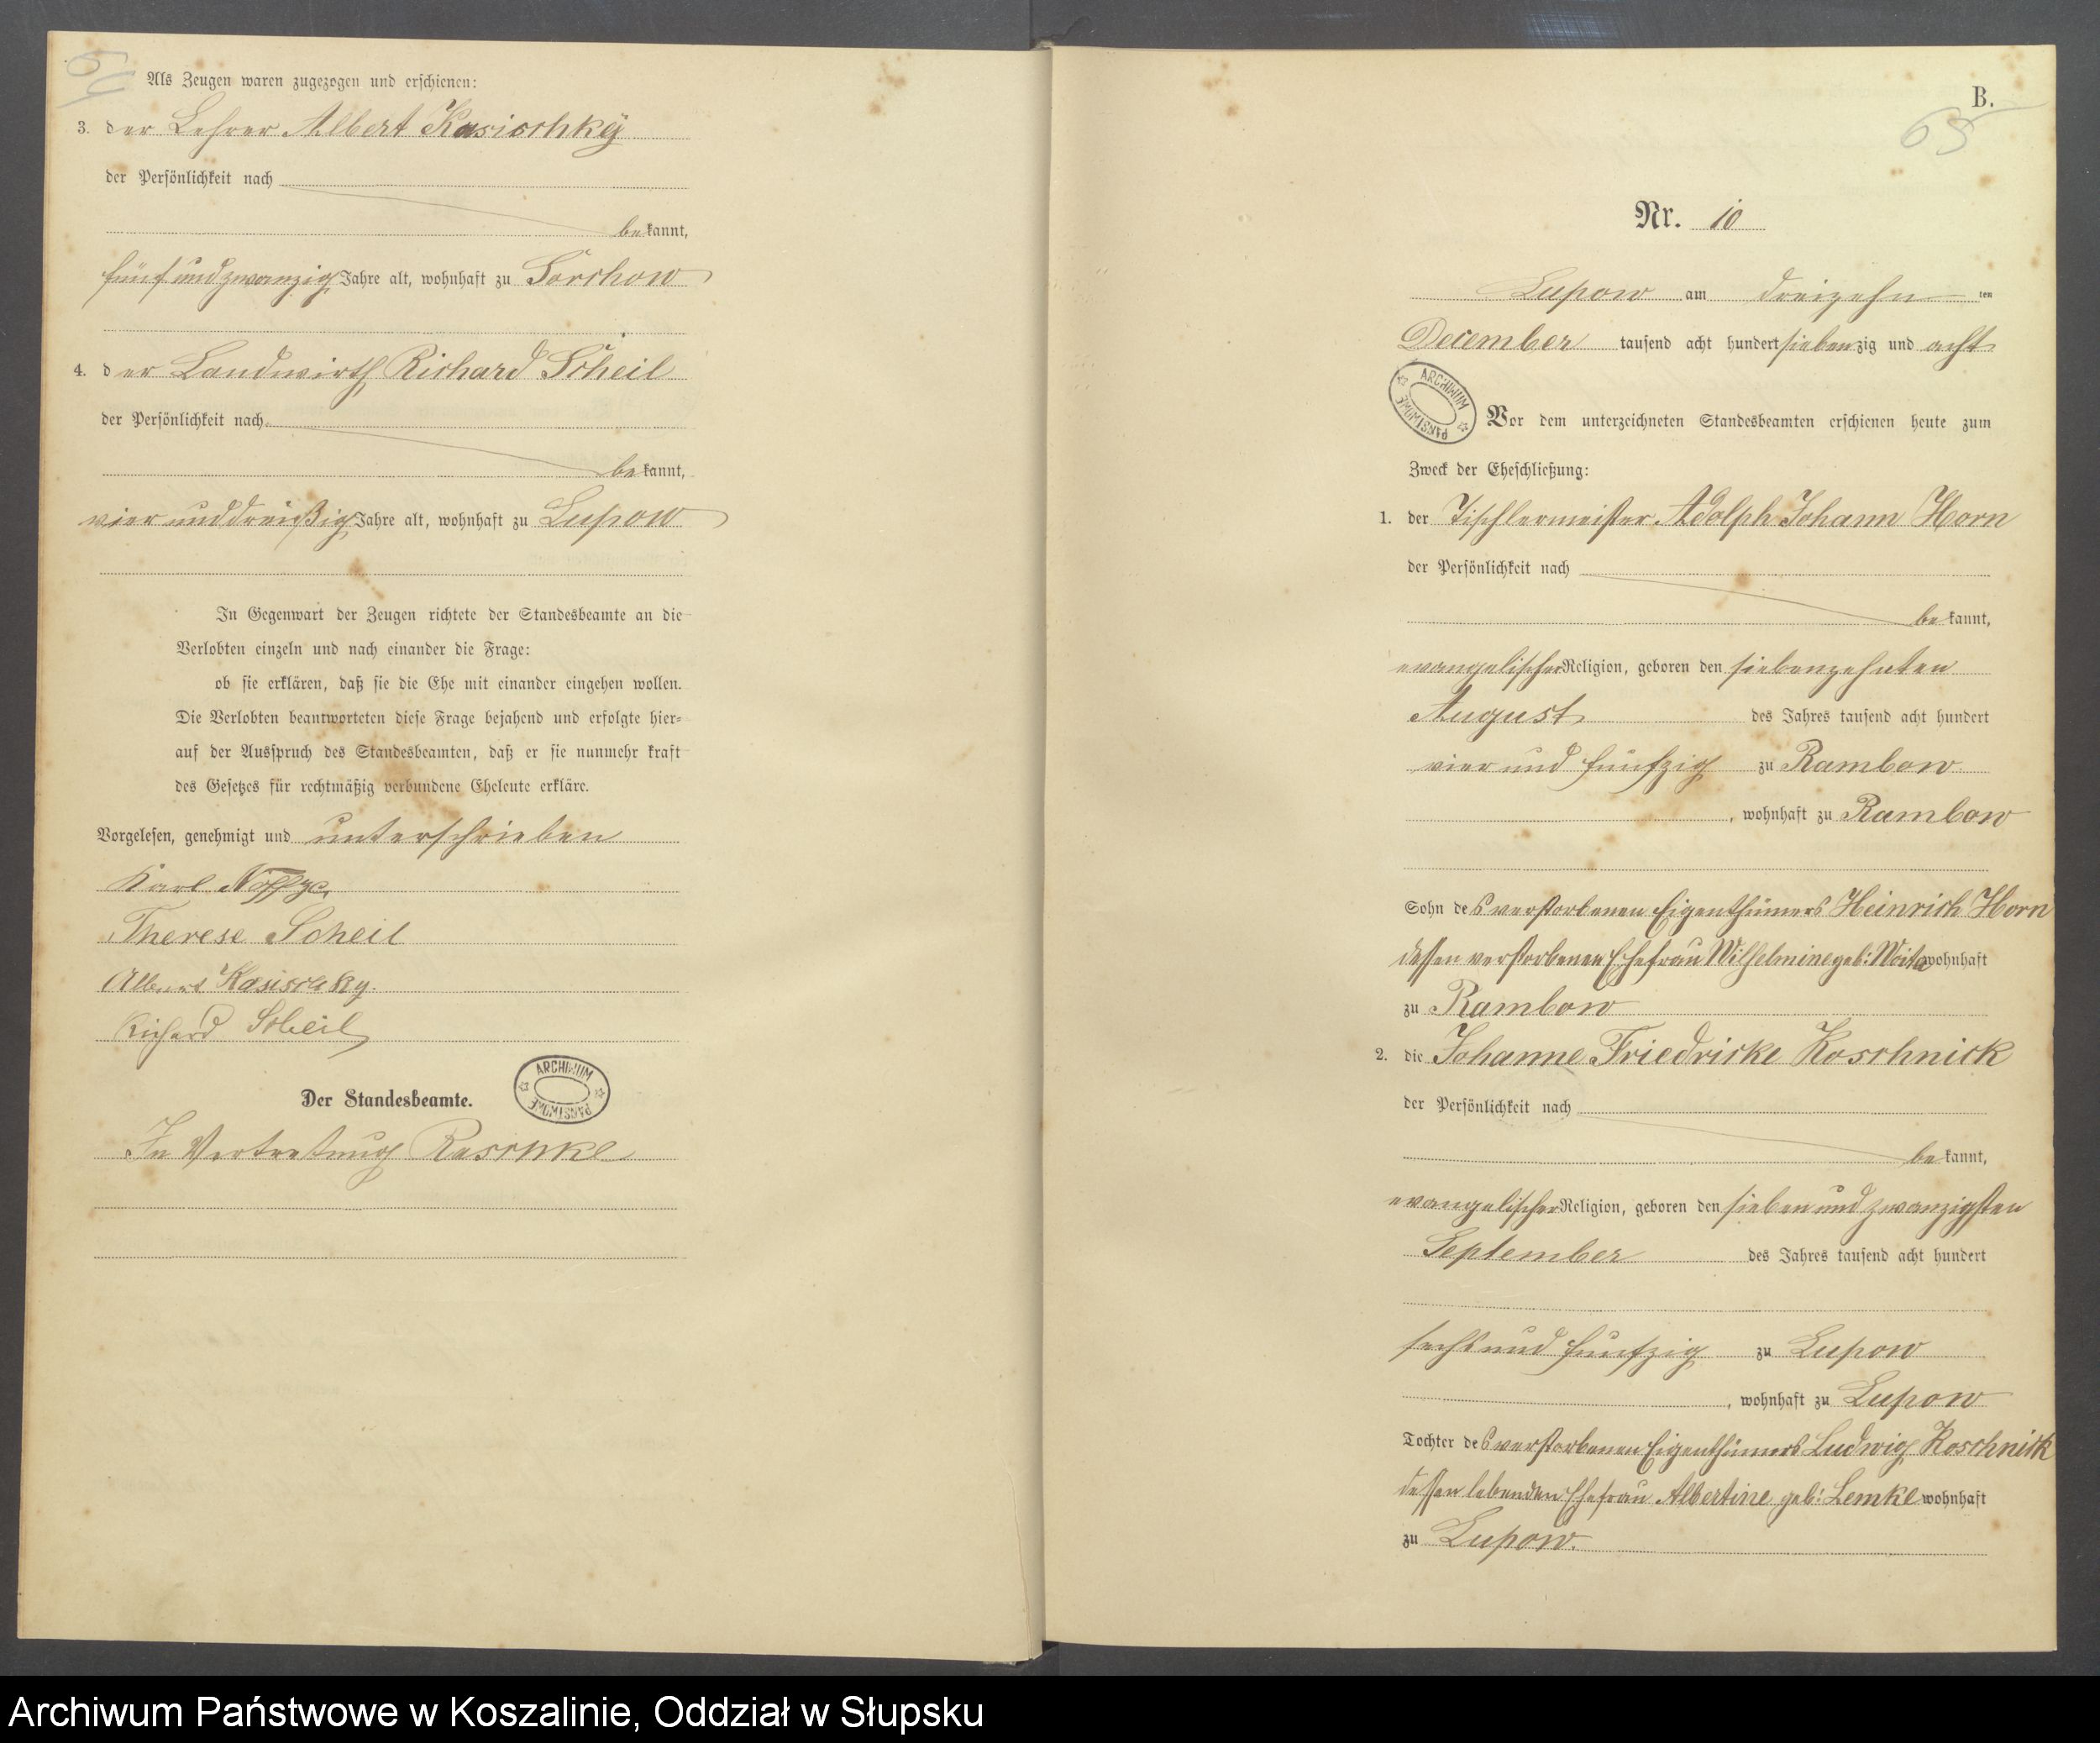 64
Als Zeugen waren zugezogen und erschienen:
3. der Lehrer Albert Kasischky
der Persönlichkeit nach
bekannt,
fünf und zwanzig Jahre alt, wohnhaft zu Sorchow
4. der Landwirth Richard Scheil
der Persönlichkeit nach
bekannt,
vier und dreißig Jahre alt, wohnhaft zu Lupow
In Gegenwart der Zeugen richtete der Standesbeamte an die
Verlobten einzeln und nach einander die Frage:
ob sie erklären, daß sie die Ehe mit einander eingehen wollen.
Die Verlobten beantworteten diese Frage bejahend und erfolgte hier-
auf der Ausspruch des Standesbeamten, daß er sie nunmehr kraft
des Gesetzes für rechtmäßig verbundene Eheleute erkläre.
Vorgelesen, genehmigt und unterschrieben
Karl
Therese Scheil
Albert Kasischky.
Richard Scheil
ARCHIWUM PAŃSTWOWE
Der Standesbeamte.
In Vertretung Raschke
B.
65
Nr. 10
Lupow am dreizehn ten
December tausend acht hundert siebenzig und acht
ARCHIWUM PAŃSTWOWE
Vor dem unterzeichneten Standesbeamten erschienen heute zum
Zweck der Eheschließung:
1. der Tischlermeister Adolph Johann Horn
der Persönlichkeit nach
bekannt,
evangelischer Religion, geboren den siebenzehnten
August des Jahres tausend acht hundert
vier und funfzig zu Rambow
, wohnhaft zu Rambow
Sohn des verstorbenen Eigenthümers Heinrich Horn
dessen verstorbenen Ehefrau Wilhelmine geb: Woita wohnhaft
zu Rambow
2. die Johanne Friedricke Koschnick
der Persönlichkeit nach
bekannt,
evangelischer Religion, geboren den sieben und zwanzigsten
September des Jahres tausend acht hundert
sechs und funfzig zu Lupow
, wohnhaft zu Lupow
Tochter des verstorbenen Eigenthümers Ludwig Koschnick
dessen lebenden Ehefrau Albertine geb: Lemke wohnhaft
zu Lupow.
Archiwum Państwowe w Koszalinie, Oddział w Słupsku